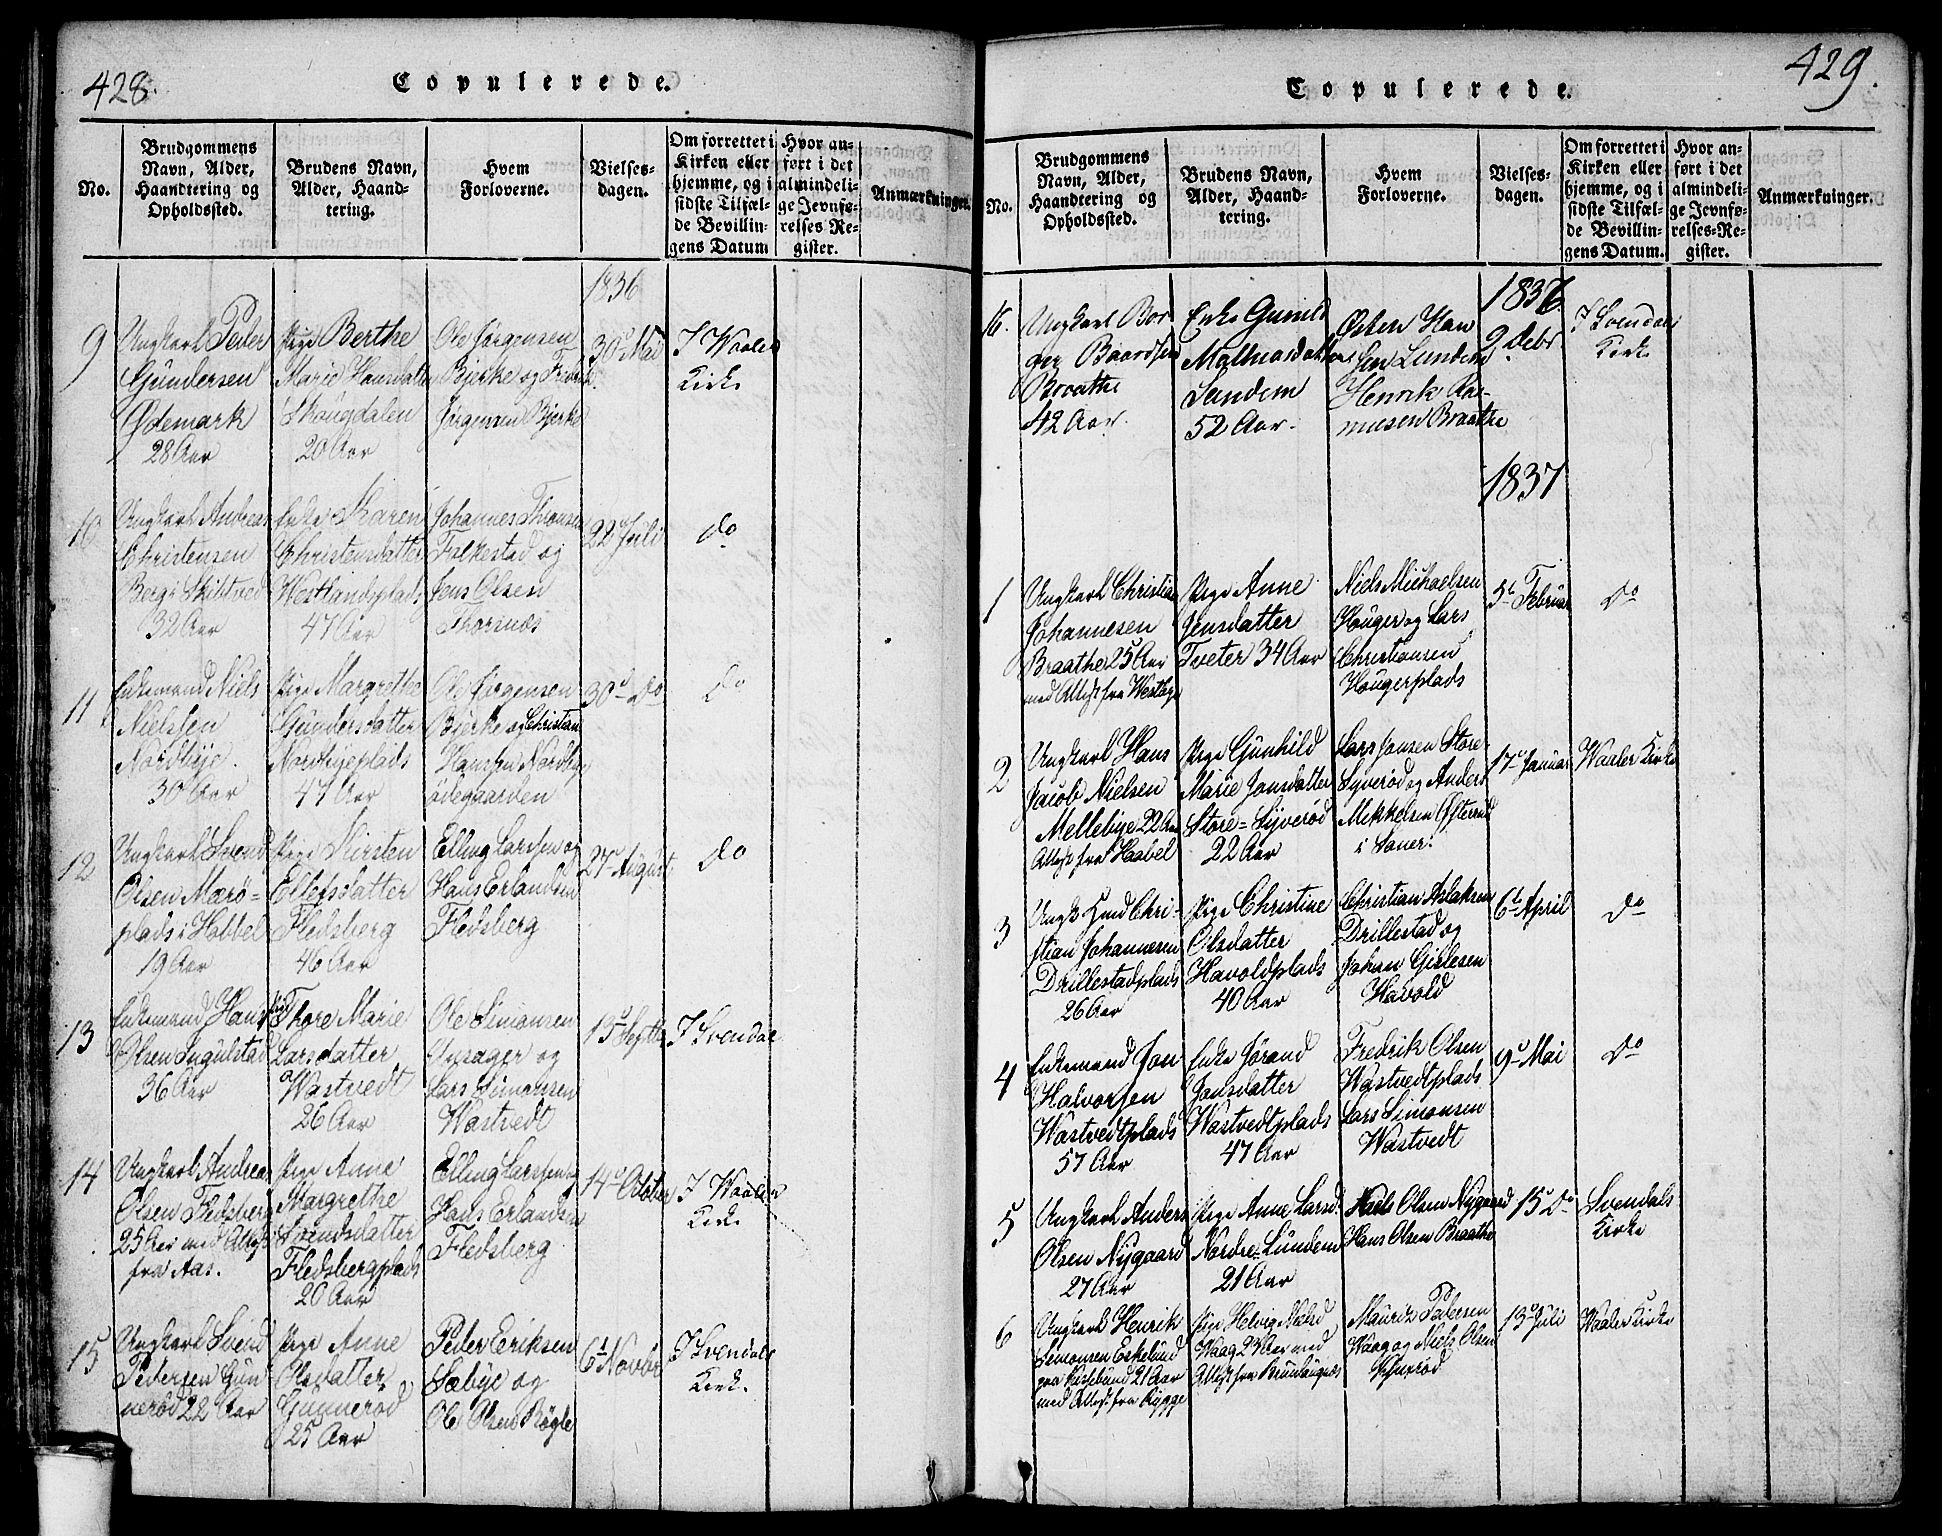 428.
Copulerede.
No.
Brudgommens
Navn, Alder,
Haandtering og
Opholdssted.
Brudens Navn,
Alder, Haand-
tering.
Hvem
Forloverne.
Vielses-
dagen.
Om forrettet i
Kirken eller
hjemme, og i
sidste Tilfæl-
de Bevillin-
gens Datum
Hvor an-
ført i det
almindeli-
ge Jevnfø-
relses-Re-
gister.
Anmærkninger.
1836
9
Ungkarl Peder
Gundersen
Ødemark
28 Aar
Pige Berthe
Marie Hansdatter
Skougdalen
20 Aar
Ole Jørgensen
Bjerke og Fredrik
Jørgensen Bjerke
30 Mai
I Waaler
Kirke
10
Ungkarl Andreas
Christensen
Berg i Skibtved
32 Aar
Enke Karen
Christensdatter
Westlandsplads
47 Aar
Johannes Thronsen
Falkestad og
Jens Olsen
Thornæs
22 Juli
do
11
Enkemand Niels
Nielsen
Nordbye.
30 Aar
Pige Margrethe
Gundersdatter
Nordbyeplads
47 Aar
Ole Jørgensen
Bjerke og Christian
Hansen Nordby
ødegaarden
30 Do
Do
12
Ungkarl Svend
Olsen Mærø-
plads i Hobbel
19 Aar
Pige Kirsten
Ellefsdatter
Fledsberg
46 Aar
Elling Larssen og
Hans Erlandsen
Fledsberg
27 August
Do
13
Enkemand Hans
Olsen Ingulstad
36 Aar
Pige Thore Marie
Larsdatter
Wastvedt
26 Aar
Ole Simonsen
Unsager og
Lars Simonsen
Wastvedt
15 Septbr
I Svendal
14
Ungkarl Andreas
Olsen Fledsberg
25 Aar med Attest
fra Aas.
Pige Anne
Margrethe
Svendsdatter
Fledsbergplads
20 Aar
Elling Larssen og
Hans Erlandsen
Fledsberg
14 October
I Waaler
Kirke
15
Ungkarl Svend
Pedersen Gun
nerød 22 Aar
Pige Anne
Olsdatter
Gunnerød
25 Aar
Peder Eriksen
Sæbye og
Ole Olsen Bøgle
6 Novbr
I Svendals
Kirke
429.
Copulerede.
No.
Brudgommens
Navn, Alder,
Haandtering og
Opholdssted.
Brudens Navn,
Alder, Haand-
tering.
Hvem
Forloverne.
Vielses-
dagen.
Om forrettet i
Kirken eller
hjemme, og i
sidste Tilfæl-
de Bevillin-
gens Datum.
Hvor an-
ført i det
almindeli-
ge Jevnfø-
relses-Re-
gister.
Anmærkninger.
1836
16.
Ungkarl Bor
ger Baardsen
Braathe
42 Aar.
Enke Gunild
Mathiasdatter
Lundem
52 Aar.
Osten Han
sen Lundem
Henrik Ras-
musen Braathe
9 Debr
I Svendal
Kirke
1837
1
Ungkarl Christian
Johannesen
Braathe 25 Aar
med Attest fra Westbye
Pige Anne
Jensdatter
Tveter 34 Aar
Niels Michaelsen
Houger og Lars
Christiansen
Hougerplads
5t Februar
Do
2
Ungkarl Hans
Jacob Nielsen
Mellebye 22 Aar
Attest fra Haabel
Pige Gunhild
Marie Jonsdatter
Store-Syverød
22 Aar
Lars Jonsen Store-
Syverød og Anders
Mikkelsen Østerrud
i Saner.
17 Januar
Waaler Kirke
3
Ungk Chri-
stian Johannesen
Drillestadplads
26 Aar
Pige Christine
Olsdatter
Havoldplads
40 Aar
Christian Aslaksen
Drillestad og
Johan Gislesen
Havold
6t April
Do
4
Enkemand Jon
Halvorsen
Wastvedtplads
57 Aar
Enke Jørand
Jonsdatter
Wastvedtplads
47 Aar
Fredrik Olsen
Wastvedtplads
Lars Simonsen
Wastvedt
9 Mai
Do
5
Ungkarl Anders
Olsen Nygaard
27 Aar
Pige Anne Larsd.
Nordre-Lundem
21 Aar
Niels Olsen Nygaard
Hans Olsen Braathe
15 Do
Svendals
Kirke
6
Ungkarl Henrik
Simonsen Eskelund
21 Aar
med Attest fra Rygge
Pige Helvig Nielsd
Waag 23 Aar med
Attest fra
Mauritz Pedersen
Waag og Niels Olsen
13 Juli
Waaler Kirke